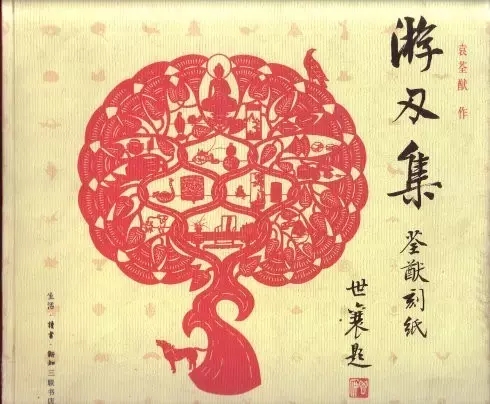 袁荃猷 作
游刃集
荃猷刻纸
世襄题
生活·讀書·新知三联书店